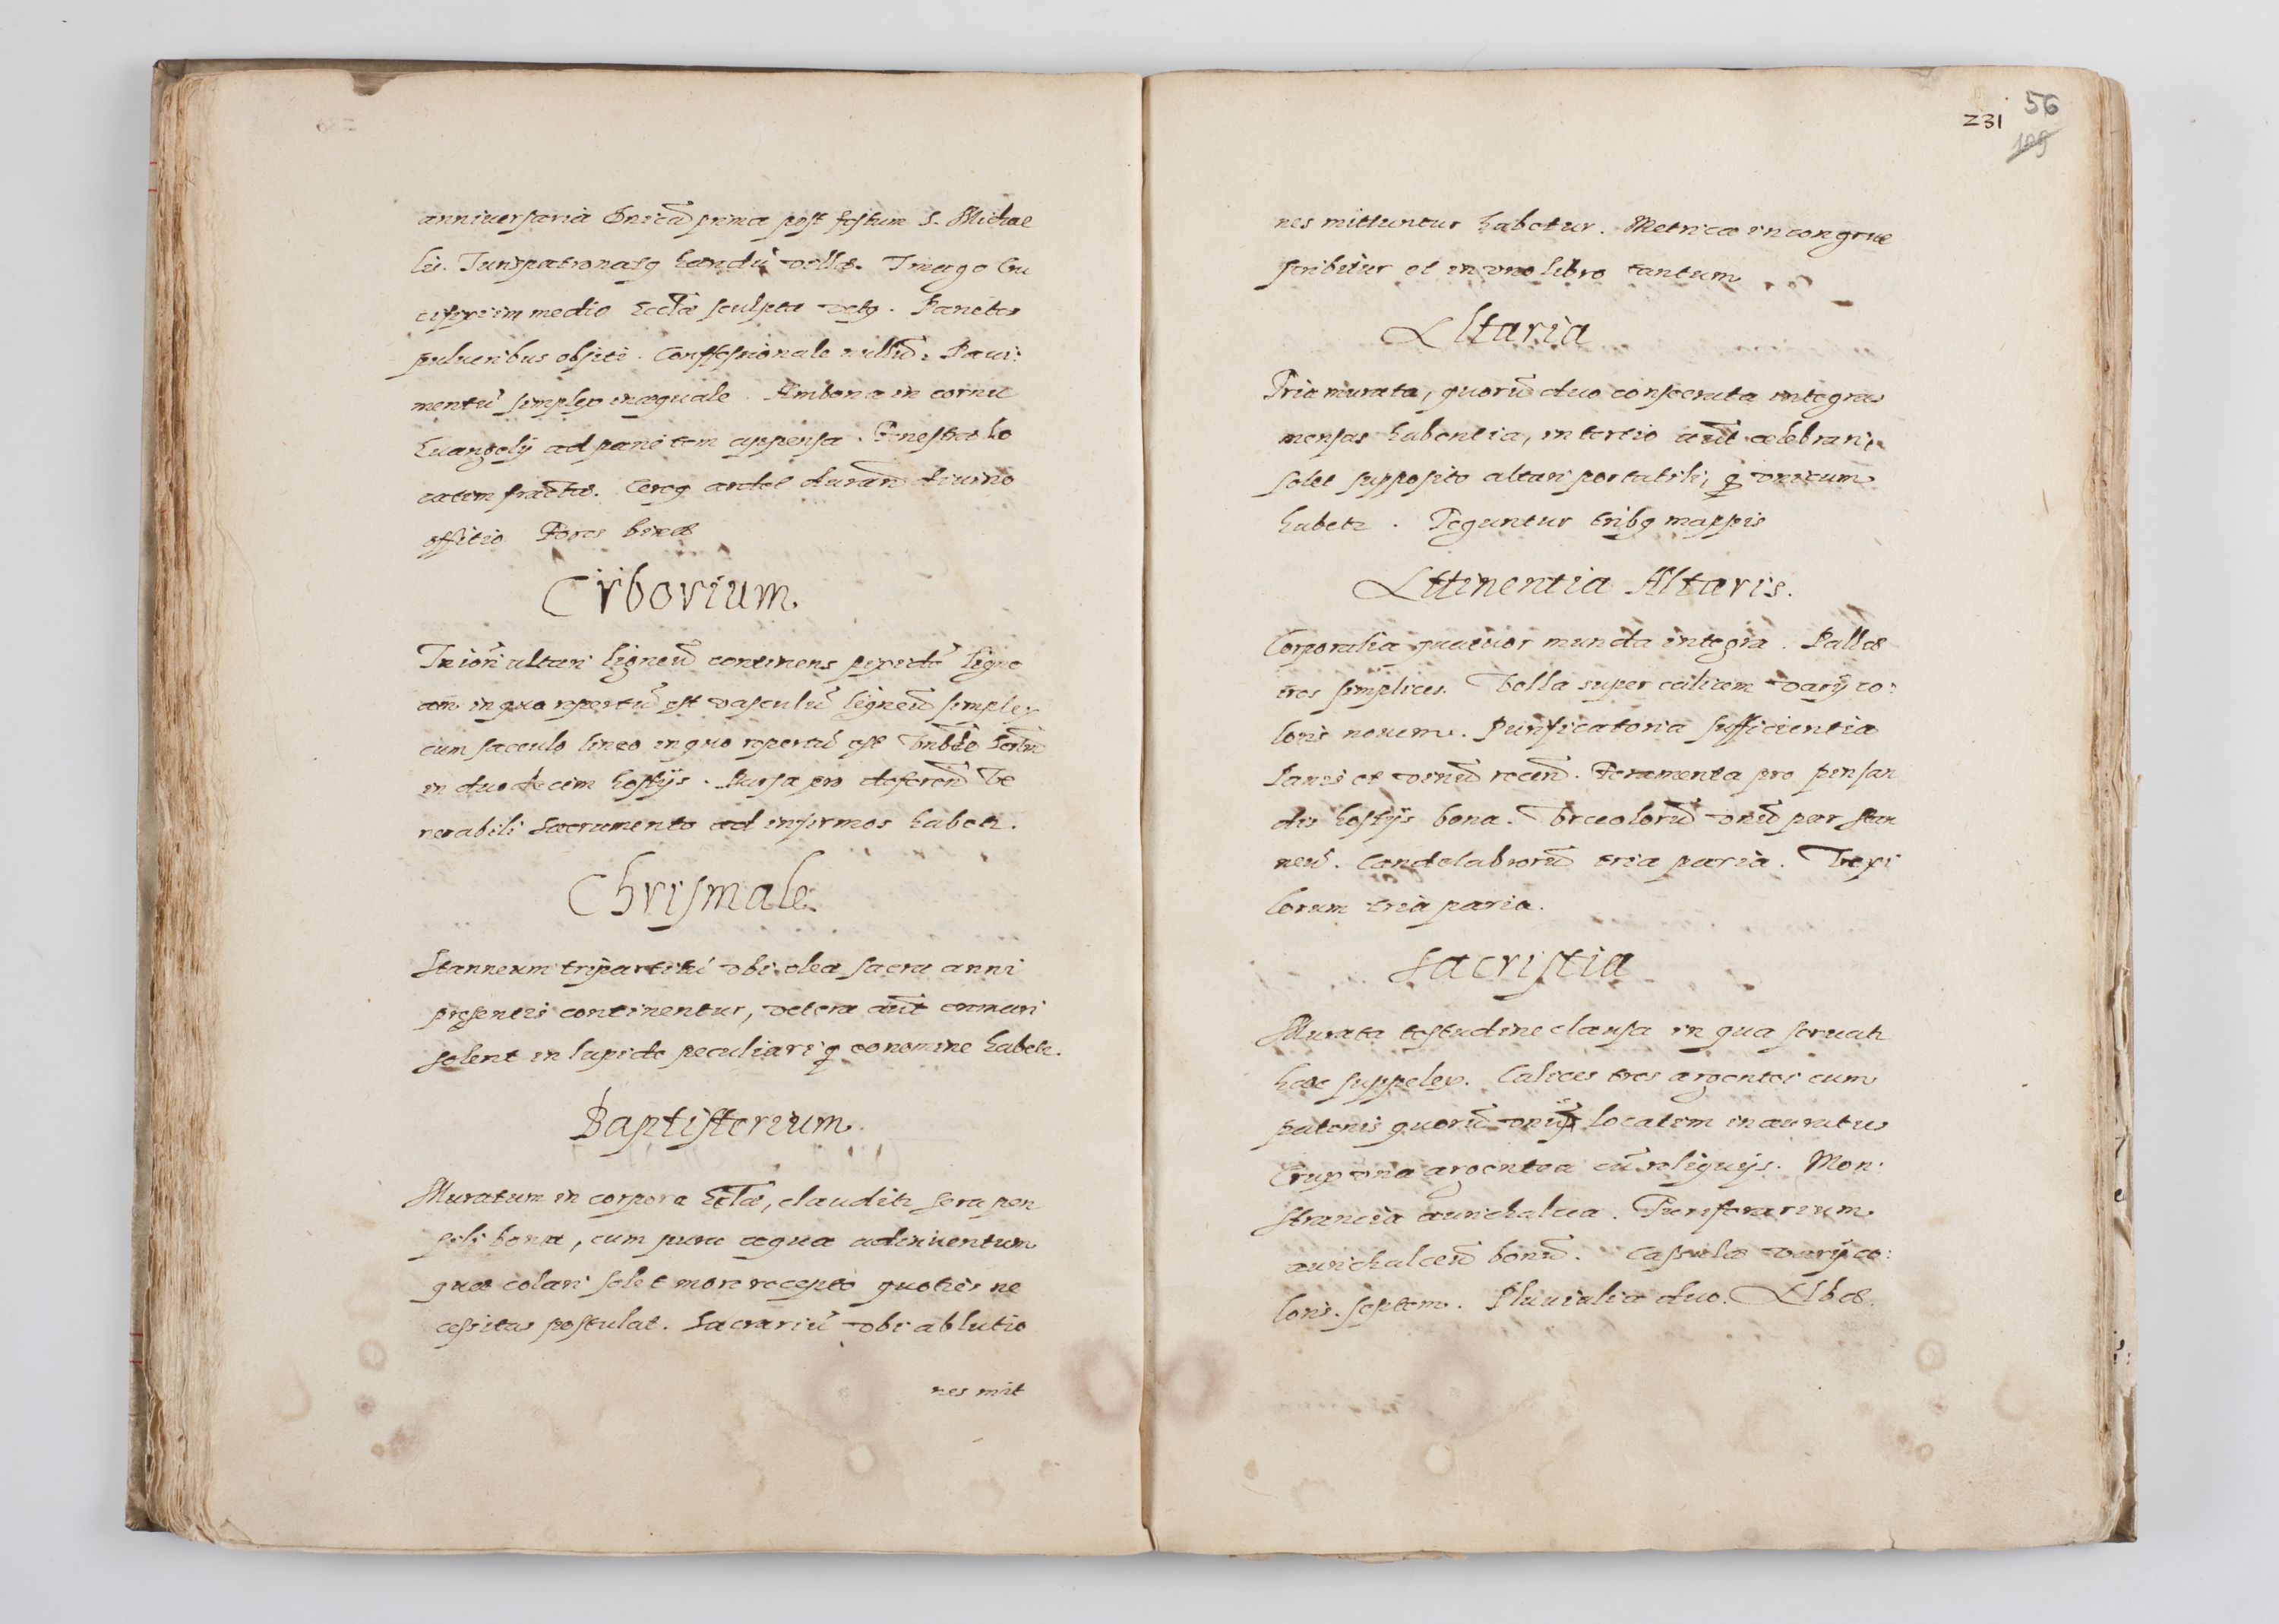 anniversaria Dnicā prima post festum S. Michae
lis. Iurispatronatꝫ Imago Cru
cifixi in medio Eccłæ sculpta vetꝫ. Parietes
pulveribus obsiti. Confessionale nullū. Pavi:
mentū simplex inæquale. Ambona in cornu
Evangelÿ ad parietem appensa. Fenestræ lo
catim fractæ. ardet divino
offitio Fores binæ
Ciborium.
In altari ligneū continens pixidē ligne
am in qua repertū est vasculū ligneū simplex
cum sacculo lineo in quo repertū est
in duodecim hostÿs. Bursa pro deferend Ve
nerabili Sacramento ad infirmos habetr.
Chrismale
Stanneum tripartitū vbi olea sacra anni
præsentis continentur, vetera aūt cremari
solent in lapide peculiari q eo nomine habetr.
Baptisterium
Muratum in corpore Eccłæ, clauditr sera pen
sili bona, cum pura aqua adinventum
quæ colari solet more recepto quoties ne
cessitas postulat. Sacrariū vbi ablutio
nes mit
231 56
109
nes mittuntur habetur. Metrica incongrue
scribitur et in vno libro tantum
Altaria
Tria murata, quorū duo consecrata integras
mensas habentia, in tertio aūt celebrari
solet supposito altari portatili, q vnicum
habetr. Teguntur tribꝫ mappis
Attinentia Altaris.
Corporalia quatuor munda integra. Pallæ
tres simplices. Vella super calicem varÿ co:
loris novem. Purificatoria sufficientia
Panis et vinū recens. Feramenta pro pinsan
dis hostÿs bona. Vrceolorū vnū par stan
neū. Candelabrorū tria paria. Vexi
lorum tria paria.
Sacristia
Murata testudine clausa in qua servatr
hæc suppelex. Calices tres argentei cum
patenis quorū locatim inauratus
Crux vna argentea cū reliquÿs. Mon:
strancia aurichalcea. Turiferarium
aurichalceū bonū. Casulæ varÿ co:
loris septem. Pluvialia duo. Albæ